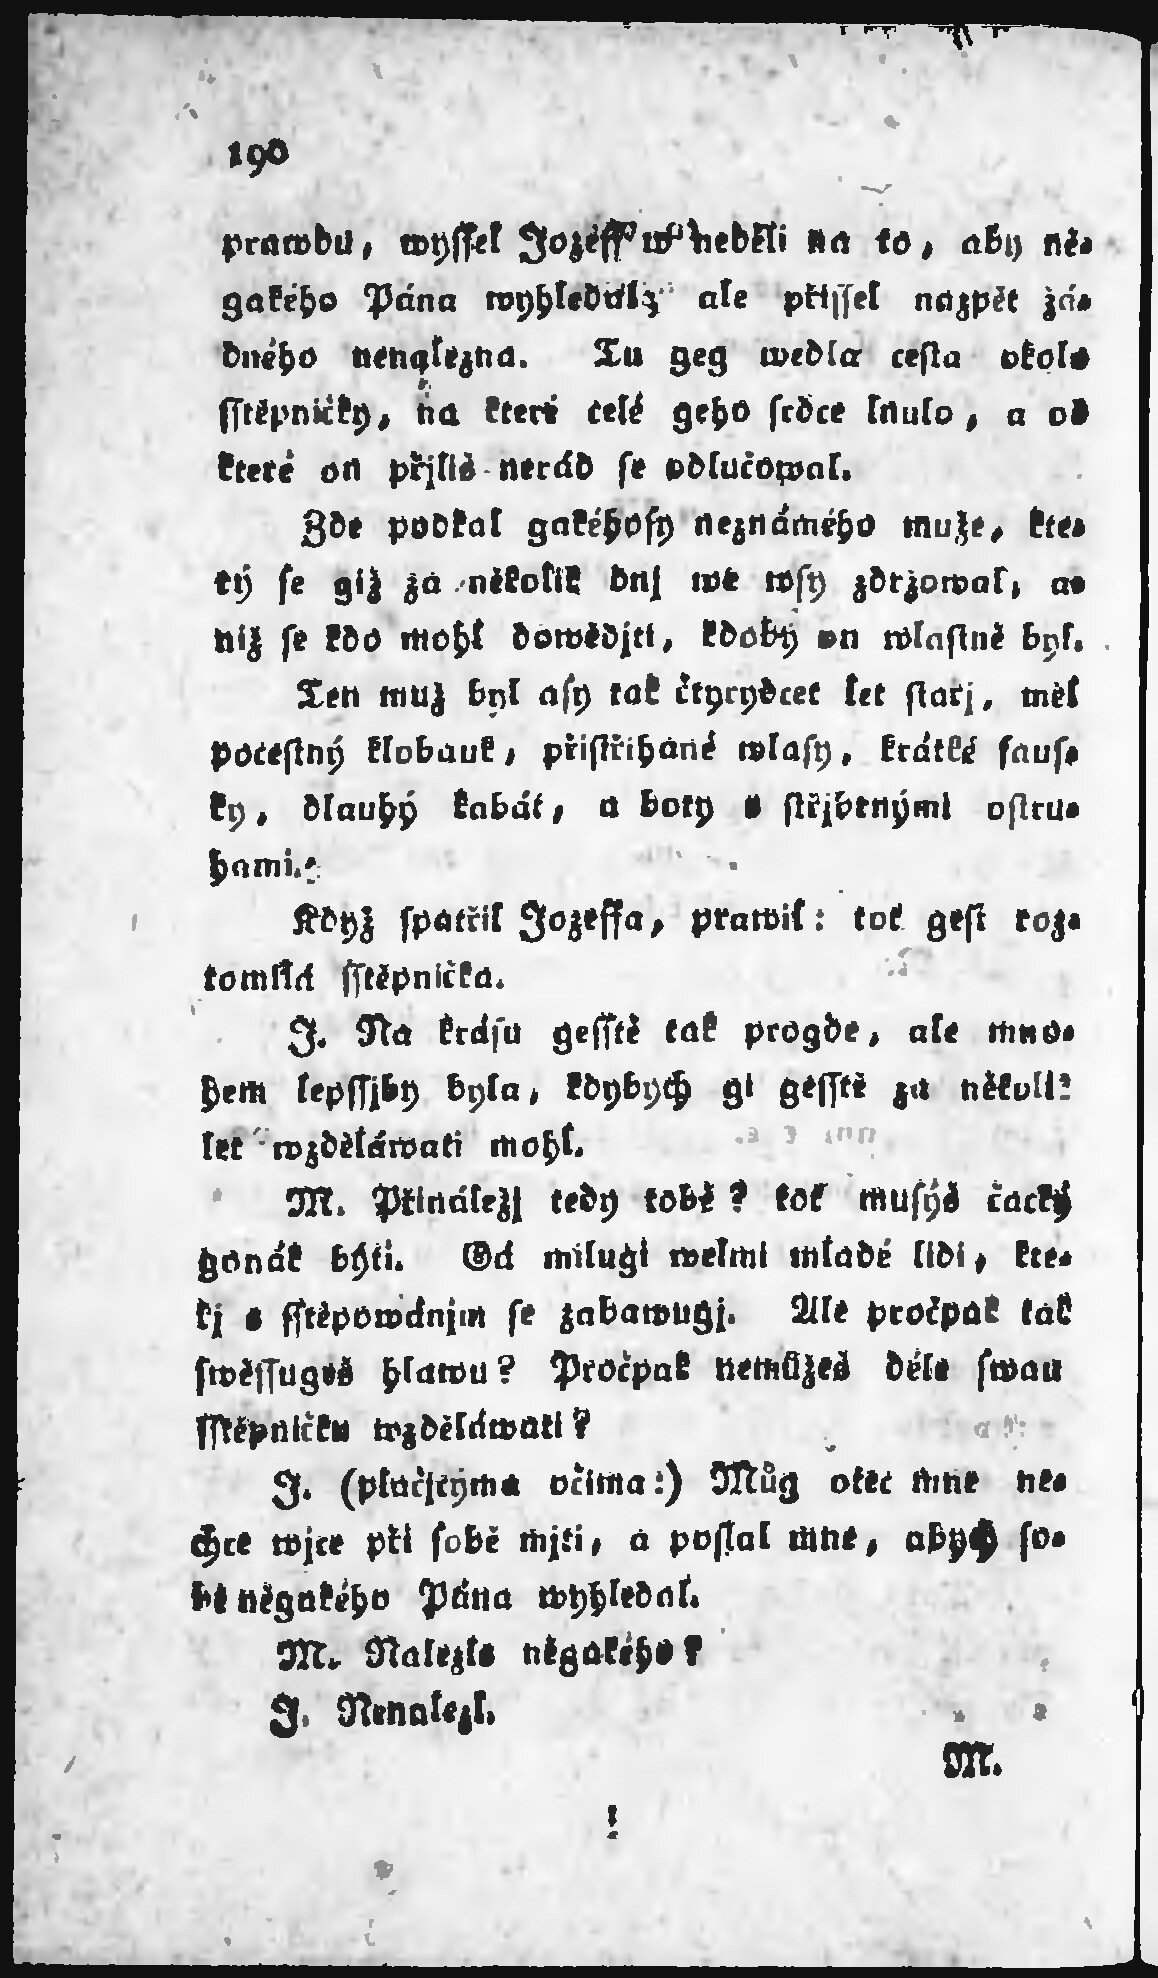 190
prawdu, wyſſel Jozeff w neděli na to, aby ně-
gakého Pána wyhledal; ale přiſſel nazpět žá-
dného nenalezna. Tu geg wedla ceſta okolo
ſſtěpničky, na kteri celé geho ſrdce lnulo, a od
které on přjliš neráð ſe odlučowal.
Zde podkal gakéhoſy neznámého muže, kte-
rý ſe giž za několik dnj we wſy zdržowal, a-
niž ſe kdo mohl dowědjti, kdoby on wlaſtně byl.
Ten muž byl aſy tak čtyrydcet let ſtarj, měl
poceſtný klobauk, přiſtřihané wlaſy, krátké fauſ-
ky, dlauhý kabát, a boty s ſtřjbrnými oſtru-
hami.
Když ſpatřil Jozeffa, prawil: toť geſt roz-
tomilá ſſtěpnička.
J. Na kráſu geſſtě tak progde, ale mno-
hem lepſſjby byla, kdybych gi geſſtě za několi-
let wzděláwati mohl.
M. Přináležj tedy tobě? toť muſýš čacký
gonák býti. Gá milugi welmi mladé lidi, kte-
řj s ſſtěpowánjm ſe zabawugj. Ale pročpak tak
ſwěſſugeš hlawu? Pročpak nemůžeš déle ſwau
ſſtěpničku wzděláwati?
J. (plačjcýma očima:) Můg otec mne ne-
chce wjce při ſobě mjti, a poſlal mne, abych ſo-
bě něgakého Pána wyhledal.
M. Nalezls něgakého?
J. Nenalezl.
M.